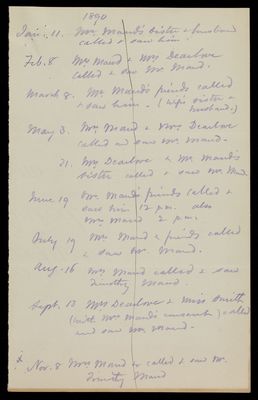 1890
Jan: 11. Mr Maud's sister & husband
called & saw him.
Feb. 8 Mrs Maud & Mrs Dearlove
called & saw Mr Maud.
March 8. Mr Maud's friends called
& saw him. (wife sister &
husband.)
May 3. Mrs Maud & Mrs Dearlove
called and saw Mr. Maud.
21. Mrs Dearlove & Mr Maud's
sister called & saw Mr Maud.
June 19 Mr. Maud's friends called &
saw him 12 p.m. also
Mrs Maud 2 p.m.
July 19 Mrs Maud & friends called
& saw Mr. Maud.
Aug. 16 Mrs Maud called & saw
Timothy Maud.
Sept. 13 Mrs Dearlove & Miss Smith
(with Mr Maud's consent) called
and saw Mr Maud.
Nov. 8 Mrs Maud called & saw Mr.
Timothy Maud